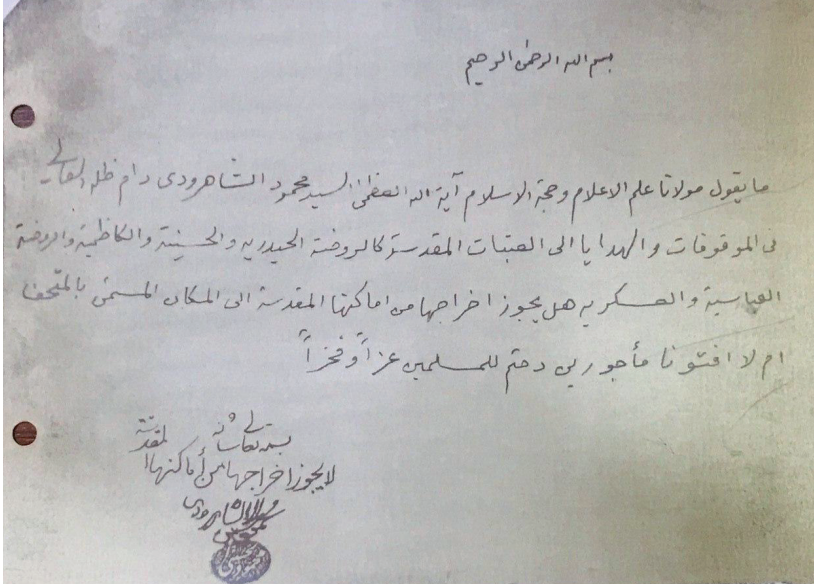 بسم الله الرحمن الرحيم
ما يقول مولانا علم الاعلام وحجة الاسلام آية الله العظمى السيد محمود الشاهرودى دام ظله العالي
فى الموقوفات والهدايا الى العتبات المقدسة كالروضة الحيدريه والحسينية والكاظمية والروضة
العباسية والعسكريه هل يجوز اخراجها من اماكنها المقدسة الى المكان المسمى بالمتحف
ام لا افتونا مأجورين دمتم للمسلمين عزاً وفخراً
بسمه تعالى شأنه
لا يجوز اخراجها من أماكنها المقدسة
محمود الشاهرودى